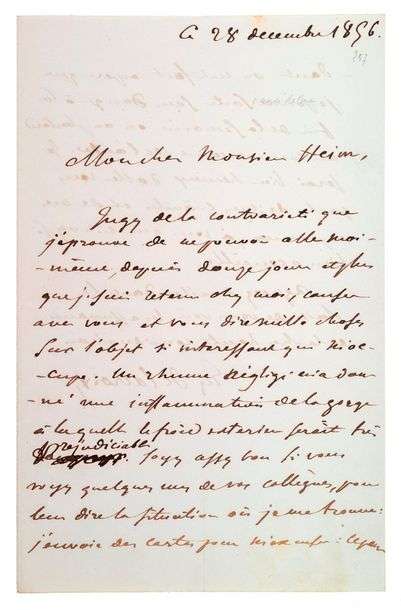 Ce 28 decembre 1856.
Mon cher Monsieur Heim,
Jugez de la contrarieté que
j'éprouve de ne pouvoir aller moi-
-même depuis douze jours et plus
que je suis retenu chez moi, causer
avec vous et vous dire mille choses
sur l'objet si interessant qui m'oc-
cupe. Un rhume négligé m'a don-
né une inflammation de la gorge
à laquelle le froid exterieur serait très
préjudiciable. Soyez assez bon si vous
voyez quelques uns de vos collègues, pour
leur dire la situation où je me trouve:
j'envoie des cartes pour m'excuser: